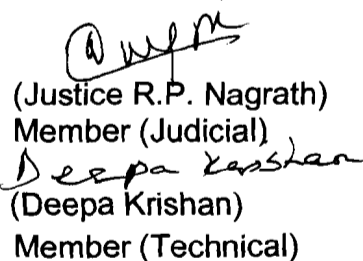 (Justice R.P. Nagrath)
Member (Judicial)
Deepa Krishan
(Deepa Krishan)
Member (Technical)